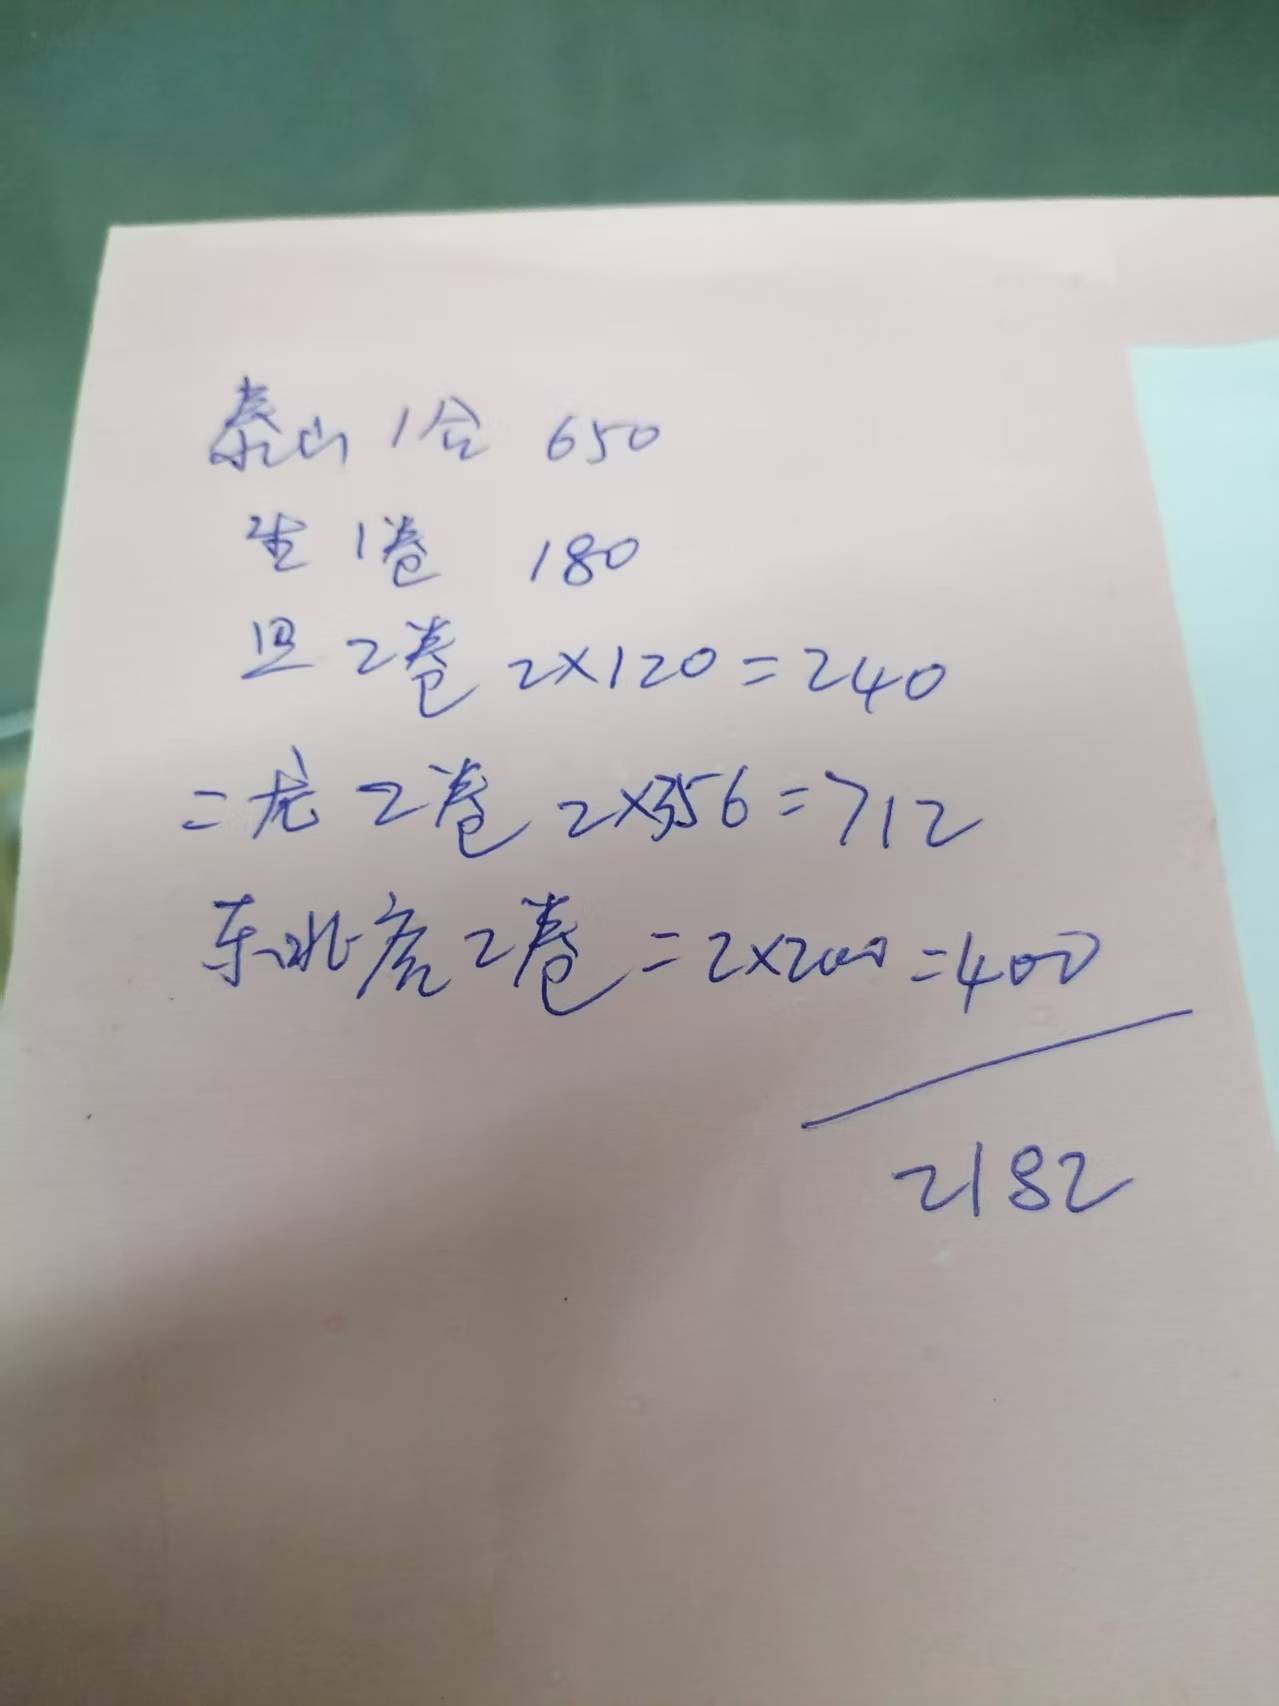 泰山 1合 650
生 1卷 180
旦 2卷 2×120=240
二龙 2卷 2×356=712
东北虎 2卷 =2×200=400
2182